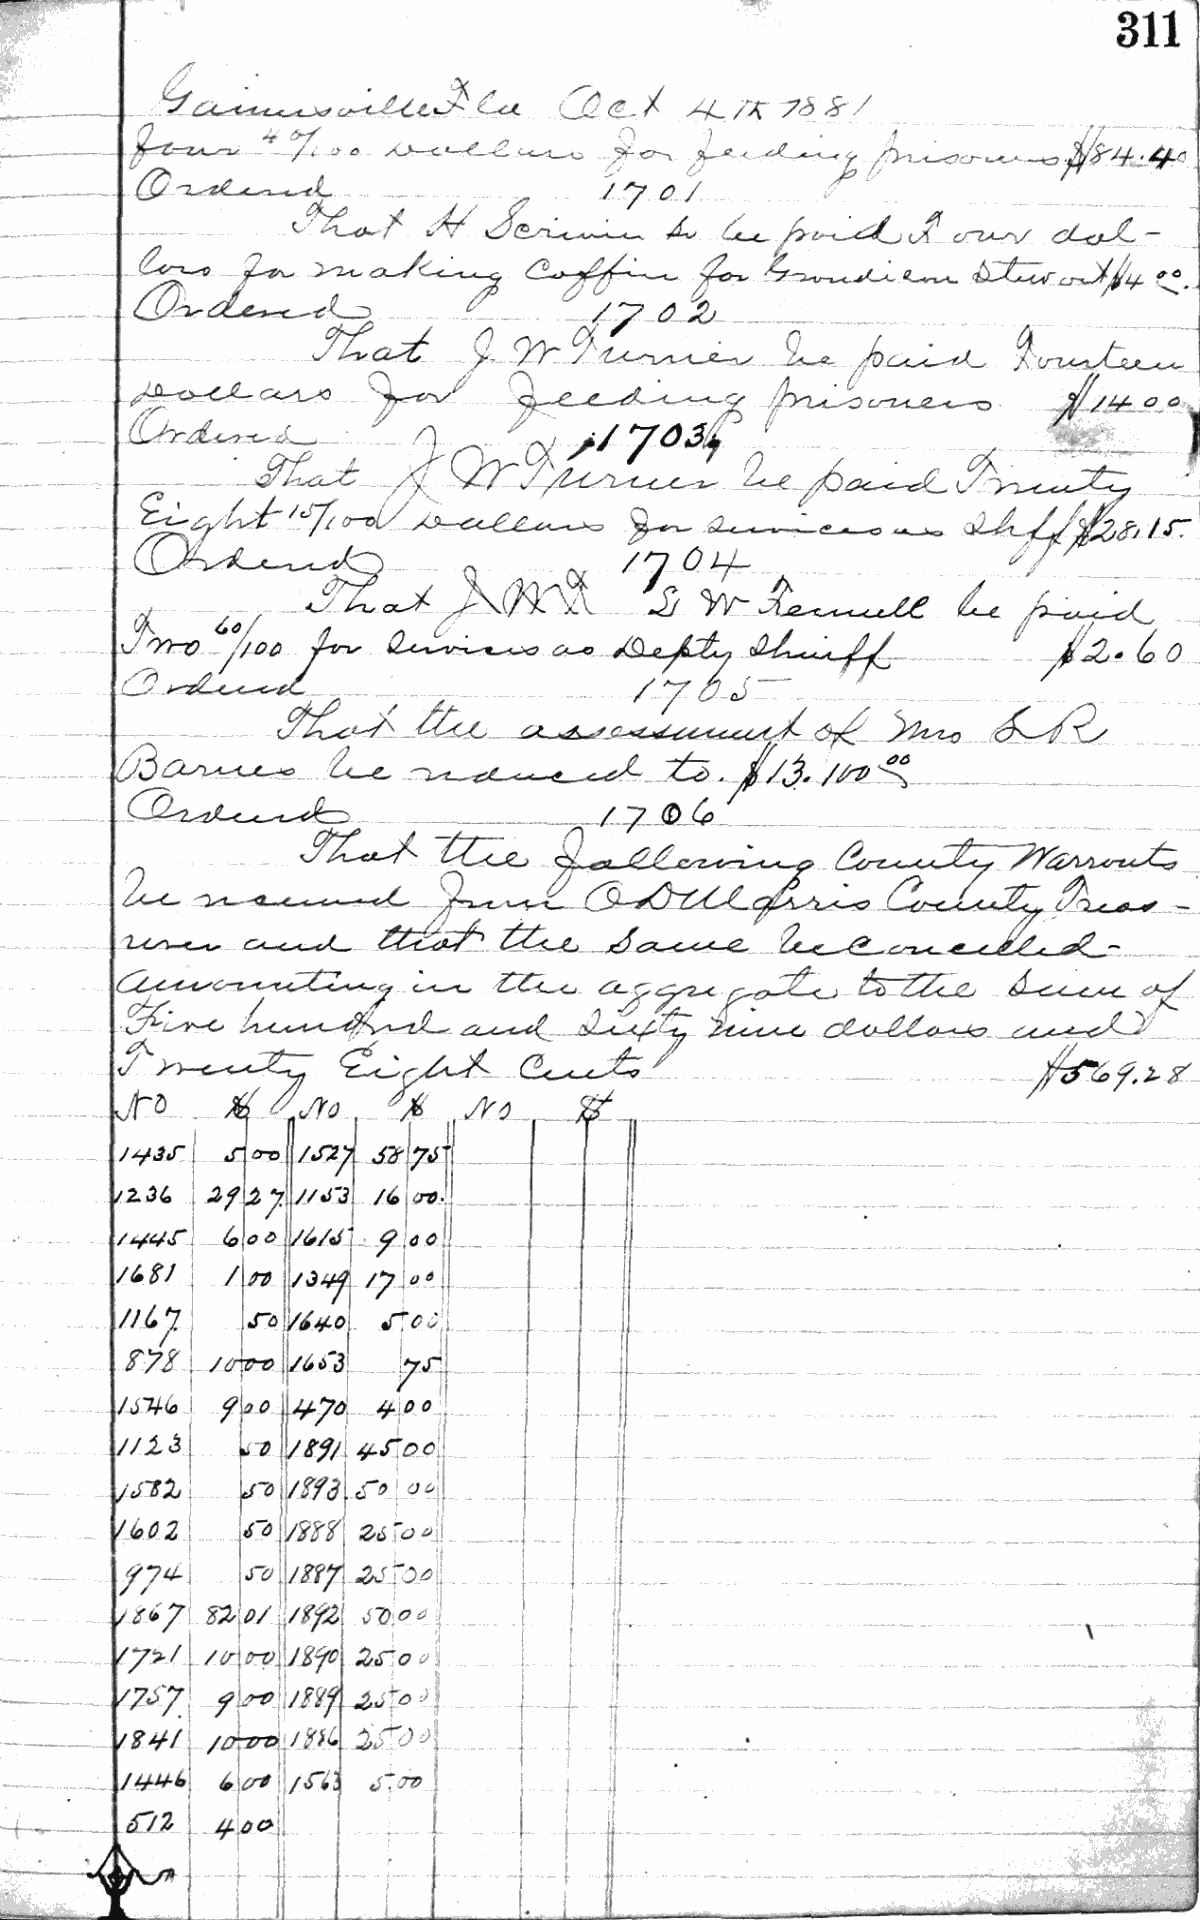 311
Gainesville Fla Oct 4th 1881
four 40/100 Dollars for feeding prisoners $84.40
Ordered 1701
That H Scrivin Sr be paid Four dol-
lars for making Coffin for Stewart $4 00.
Ordered 1702
That J W Turner be paid Fourteen
Dollars for feeding prisoners $14 00
Ordered 1703
That J W Turner be paid Twenty
Eight 15/100 Dollars for services as Shff $28.15.
Ordered 1704
That J W T S W Fennell be paid
Two 60/100 for services as Depty Sheriff $2.60
Ordered 1705
That the assessment of Mrs S R
Barnes be reduced to. $13.100 00
Ordered 1706
That the following County Warrants
be received from O D Morris County Treas-
urer and that the same be Cancelled-
amounting in the aggregate to the Sum of
Five hundrd and Sixty nine dollars and
Twenty Eight Cents $569.28
NO $ NO $ NO $
1435 5 00 1527 58 75
1236 29 27 1153 16 00.
1445 6 00 1615 9 00
1681 1 00 1349 17 00
1167 50 1640 5 00
878 10 00 1653 75
1546 9 00 470 4 00
1123 50 1891 45 00
1582 50 1893 50 00
1602 50 1888 25 00
974 50 1887 25 00
1867 82 01 1892 50 00
1721 10 00 1890 25 00
1757 9 00 1889 25 00
1841 10 00 1886 25 00
1446 6 00 1563 5 00
512 4 00